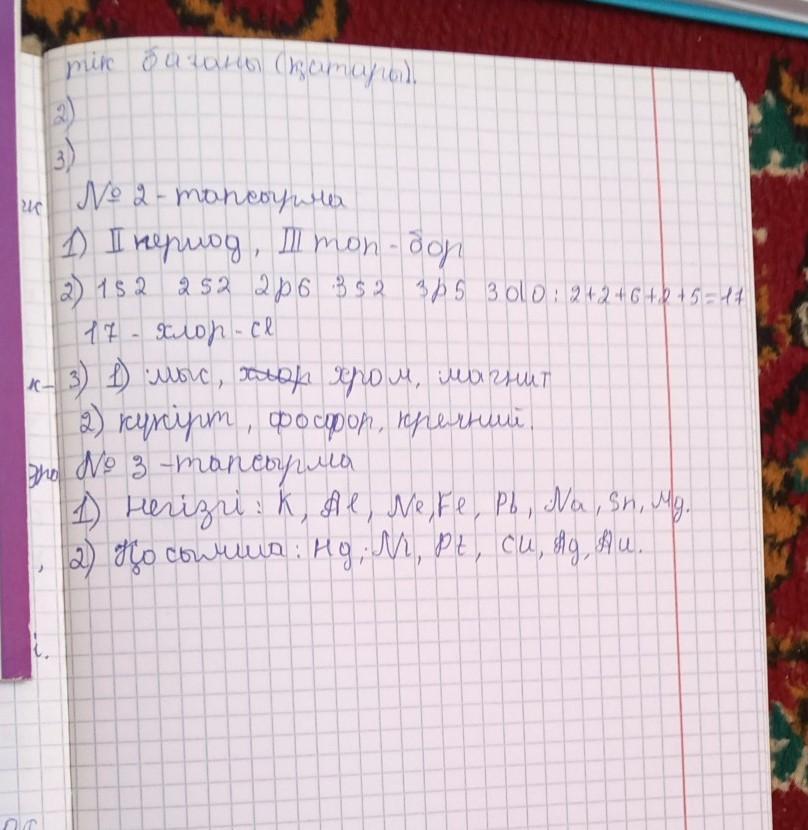 тік бағаны (қатары).
2)
3)
№ 2 - тапсырма
1) II период, III топ - бор
2) 1s2 2s2 2p6 3s2 3p5 3d0: 2+2+6+2+5=17
17 - хлор - cl
3) 1) мыс, хлор хром, магнит
2) күкірт, фосфор, кремний.
№ 3 - тапсырма
1) Негізгі: K, Al, Ne, Fe, Pb, Na, Sn, Mg.
2) Қосымша: Hg, Ni, Pt, Cu, Ag, Au.